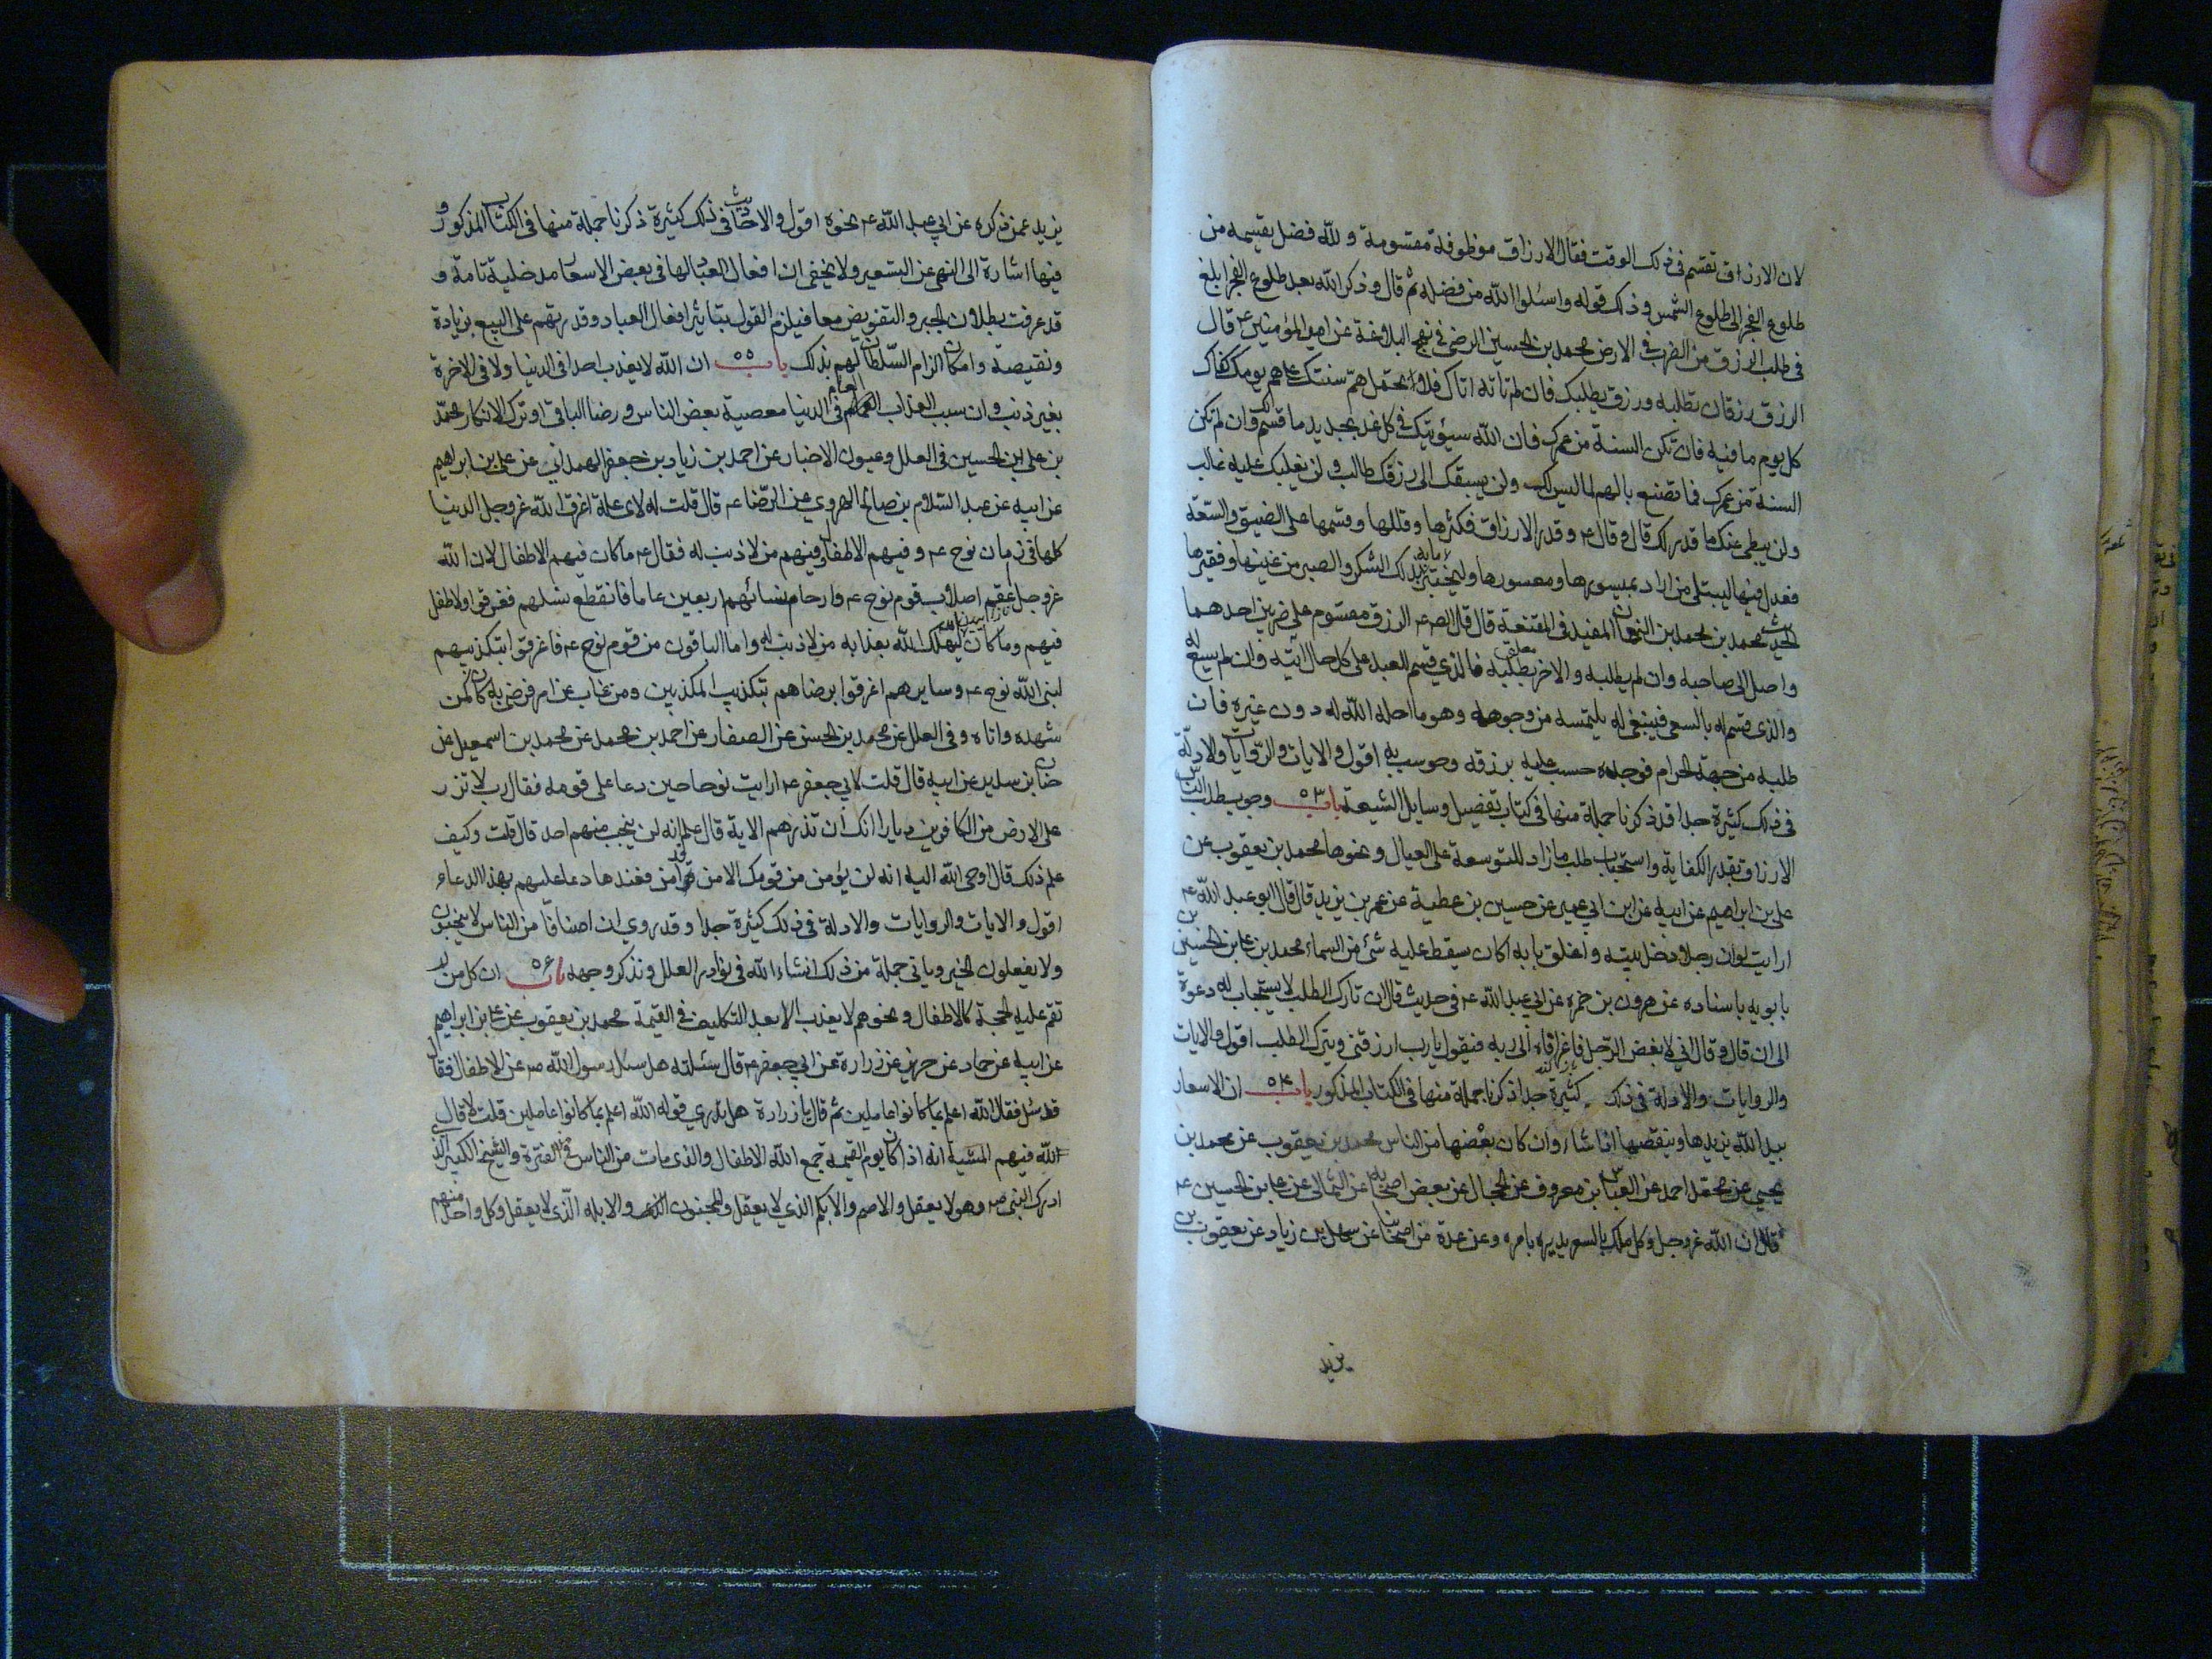 لان الارزاق تقسم في ذلك الوقت فقال الارزاق موظوفة مقسومة ولله فضل يقسمه من
طلوع الفجر الى طلوع الشمس وذلك قوله واسئلوا الله من فضله ثم قال وذكر الله بعد طلوع الفجر ابلغ
في طلب الرزق من الضرب في الارض محمد بن الحسين الرضي في نهج البلاغة عن امير المؤمنين ع قال
الرزق رزقان رزق تطلبه ورزق يطلبك فان لم تاته اتاك فلا تحمل هم سنتك على هم يومك كفاك
كل يوم ما فيه فان تكن السنة من عمرك فان الله سيؤتيك في كل غد جديد ما قسم لك وان لم تكن
السنة من عمرك فما تصنع بالهم لما ليس لك ولن يسبقك الى رزقك طالب ولن يغلبك عليه غالب
ولن يبطئ عنك ما قدر لك قال وقال ع وقدر الارزاق فكثرها وقللها وقسمها على الضيق والسعة
فعدل فيها ليبتلي من اراد بميسورها ومعسورها وليختبر بذلك الشكر والصبر من غنيها وفقيرها
الحديث محمد بن محمد بن النعمان المفيد في المقنعة قال قال الص ع الرزق مقسوم على ضربين احدهما
واصل الى صاحبه وان لم يطلبه والاخر معلق بطلبه فالذي قسم للعبد على كل حال آتيه وان لم يسع له
والذي قسم له بالسعي فينبغي له يلتمسه من وجوهه وهو ما احله الله له دون غيره فان
طلبه من جهة الحرام فوجده حسب عليه برزقه وحوسب به اقول والايات والروايات والادلة
في ذلك كثيرة جدا قد ذكرنا جملة منها في كتاب تفصيل وسايل الشيعة باب ٥٣ وجوب طلب الناس
الارزاق بقدر الكفاية واستحباب طلب ما زاد للتوسعة على العيال ونحوها محمد بن يعقوب عن
علي بن ابراهيم عن ابيه عن ابن ابي عمير عن حسين بن عطية عن عمر بن يزيد قال قال ابو عبد الله ع
ارايت لو ان رجلا دخل بيته واغلق بابه اكان يسقط عليه شئ من السماء محمد بن علي بن الحسين بن
بابويه باسناده عن هرون بن حمزه عن ابي عبد الله ع في حديث قال ان تارك الطلب لا يستجاب له دعوة
الى ان قال وقال اني لابغض الرجل فاغرا فاه الى ربه فيقول يا رب ارزقني ويترك الطلب اقول والايات
والروايات والادلة في ذلك كثيرة جدا ذكرنا جملة منها في الكتاب المذكور باب ٥٤ ان الاسعار
بيد الله يزيدها وينقصها اذا شاء وان كان بعضها من الناس محمد بن يعقوب عن محمد بن
يحيى عن محمد بن احمد عن العباس بن معروف عن الحجال عن بعض اصحابه عن الثمالي عن علي بن الحسين ع
قال ان الله عز وجل وكل ملكا بالسعر يدبره بامره وعن عدة من اصحابنا عن سهل بن زياد عن يعقوب بن
يزيد
يزيد عمن ذكره عن ابي عبد الله ع نحوه اقول والاحاديث في ذلك كثيرة ذكرنا جملة منها في الكتاب المذكور و
فيها اشارة الى النهي عن التسعير ولا يخفى ان افعال العباد لها في بعض الاسعار مدخلية تامة و
قد عرفت بطلان الجبر والتفويض معا فيلزم القول بتاثير افعال العباد وقدرتهم على البيع بزيادة
ونقيصة وامكان الزام السلطان لهم بذلك باب ٥٥ ان الله لا يعذب احدا في الدنيا ولا في الاخرة
بغير ذنب وان سبب العذاب العام في الدنيا معصية بعض الناس ورضا الباقي او ترك الانكار محمد
بن علي بن الحسين في العلل وعيون الاخبار عن احمد بن زياد بن جعفر الهمداني عن علي بن ابراهيم
عن ابيه عن عبد السلام بن صالح الهروي عن الرضا ع قال قلت له لاي علة اغرق الله عز وجل الدنيا
كلها في زمان نوح ع وفيهم الاطفال وفيهم من لا ذنب له فقال ع ما كان فيهم الاطفال لان الله
عز وجل اعقم اصلاب قوم نوح ع وارحام نسائهم اربعين عاما فانقطع نسلهم فغرقوا ولا طفل
فيهم وما كان ليهلك الله بعذابه من لا ذنب له واما الباقون من قوم نوح ع فاغرقوا بتكذيبهم
لنبي الله نوح ع وسايرهم اغرقوا برضاهم بتكذيب المكذبين ومن غاب عن امر فرضي به كان كمن
شهده واتاه وفي العلل عن محمد بن الحسن عن الصفار عن احمد بن محمد عن محمد بن اسمعيل عن
حنان بن سدير عن ابيه قال قلت لابي جعفر ع ارايت نوحا حين دعا على قومه فقال رب لا تذر
على الارض من الكافرين ديارا انك ان تذرهم الاية قال علم انه لن ينجب منهم احد قال قلت وكيف
علم ذلك قال اوحى الله اليه انه لن يؤمن من قومك الا من قد امن فعندها دعا عليهم بهذا الدعاء
اقول والايات والروايات والادلة في ذلك كثيرة جدا وقد روي ان اصنافا من الناس لا ينجبون
ولا يفعلون الخير وياتي جملة من ذلك انشاء الله في نوادر العلل ونذكر وجهه باب ٥٦ ان كل من لم
تقم عليه الحجة كالاطفال ونحوهم لا يعذب الا بعد التكليف في القيمة محمد بن يعقوب عن علي بن ابراهيم
عن ابيه عن حماد عن حريز عن زرارة عن ابي جعفر ع قال سئلته هل سئل رسول الله ص عن الاطفال فقال
قد سئل فقال الله اعلم بما كانوا عاملين ثم قال يا زرارة هل تدري قوله الله اعلم بما كانوا عاملين قلت لا قال
لله فيهم المشية انه اذا كان يوم القيمة جمع الله الاطفال والذي مات من الناس في الفترة والشيخ الكبير الذي
ادرك النبي ص وهو لا يعقل والاصم والابكم الذي لا يعقل والمجنون والابله الذي لا يعقل وكل واحد منهم